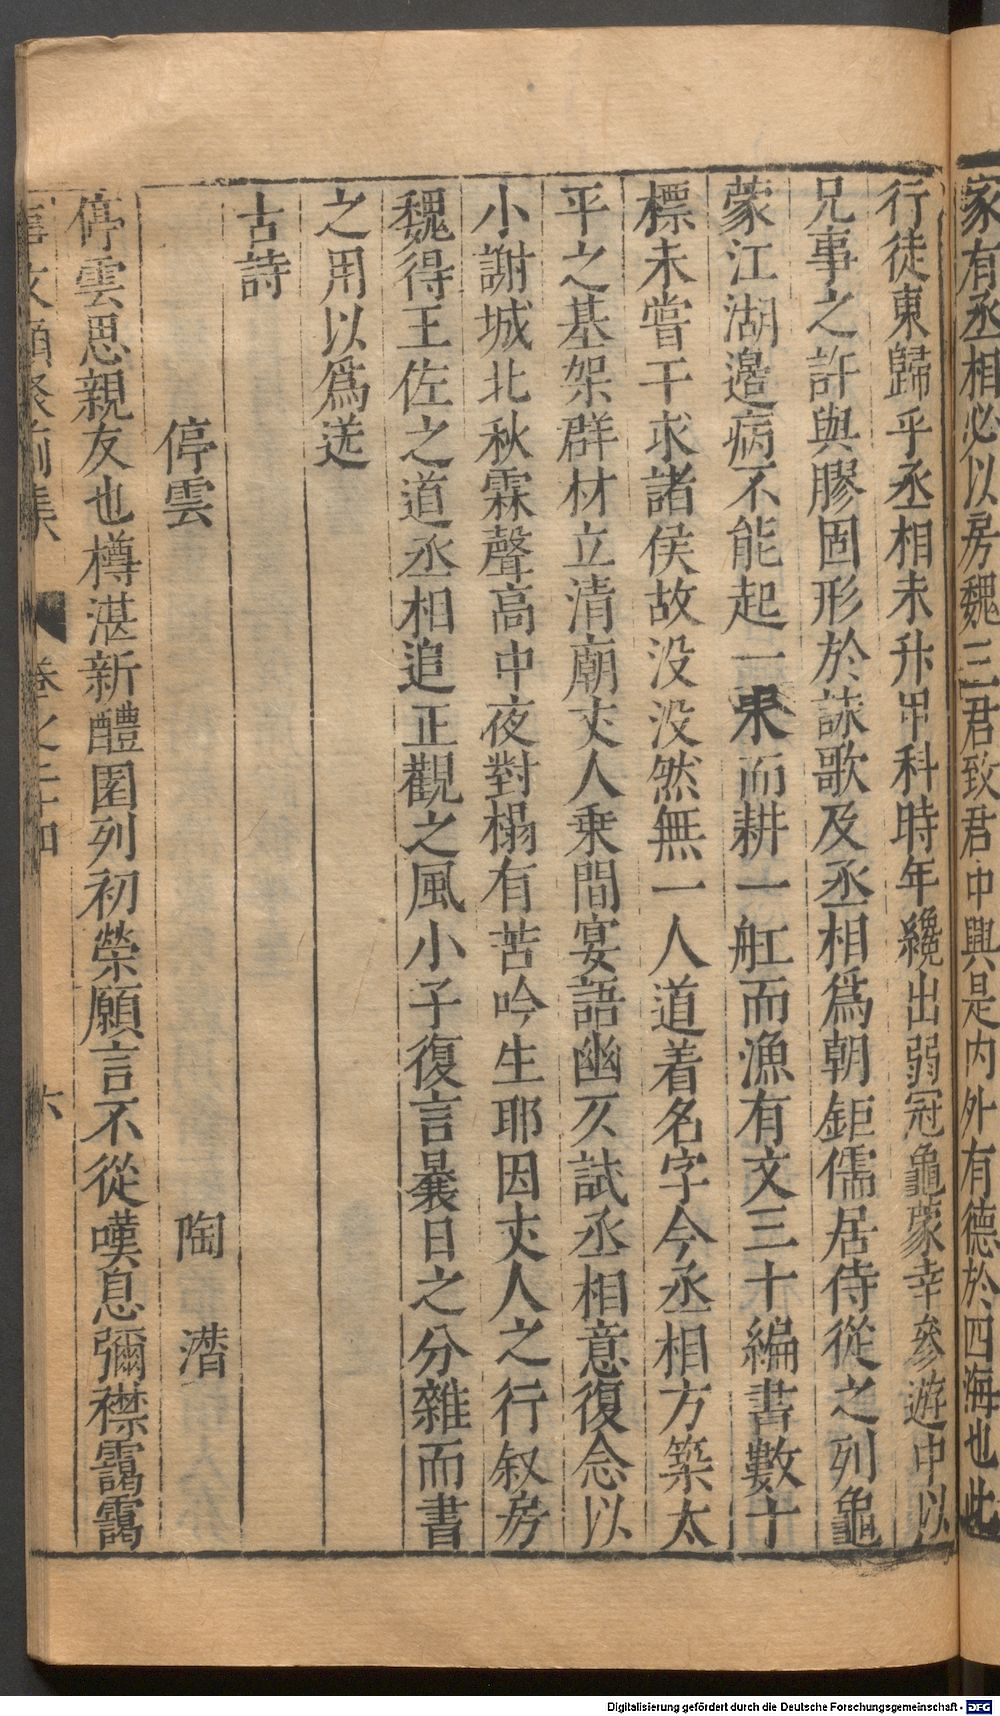 家有丞相必以房魏三君致君中興是内外有德於四海也此
行徒東歸乎丞相未升甲科時年纔出弱冠龜蒙幸參遊中以
兄事之許與膠固形於詠歌及丞相爲朝鉅儒居侍從之列龜
蒙江湖邉病不能起一耒而耕一舡而漁有文三十編書數十
標未嘗干求諸侯故没没然無一人道着名字今丞相方築太
平之基架群材立清廟丈人乗間宴語幽仄試丞相意復念以
小謝城北秋霖聲高中夜對榻有苦吟生耶因丈人之行叙房
魏得王佐之道丞相追正觀之風小子復言曩日之分雜而書
之用以爲送
古詩
停雲 陶潛
停雲思親友也樽湛新醴園列初榮願言不從嘆息彌襟靄靄
事文類聚前集 卷之二十四 六
Digitalisierung gefördert durch die Deutsche Forschungsgemeinschaft - DFG